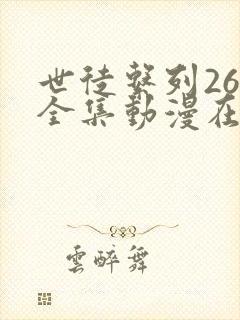 世徒繫列26
全集動漫在
雲醉舞